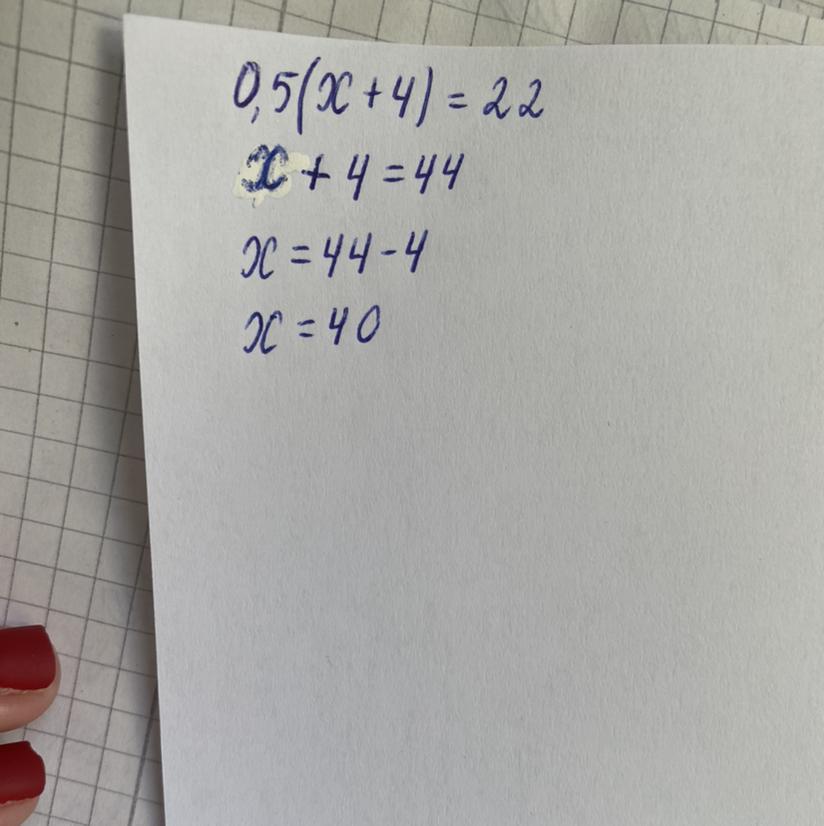 0,5(x+4) = 22
x + 4 = 44
x = 44 - 4
x = 40